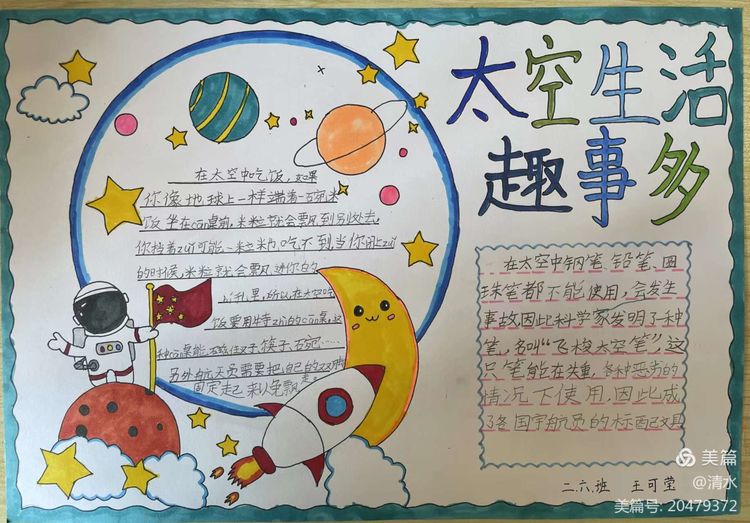 太空生活
趣事多
在太空中吃饭，如果
你像地球上一样端着一碗米
饭坐在can桌前，米粒就会飘到别处去。
你张着zui可能一粒米也吃不到当你闭上zui
的时候，米粒就会飘进你的
饭要用特
筷子
另外
员需要把自己的双脚
固定起来以免飘走。
在太空中钢笔、铅笔、圆
珠笔都不能使用，会发生
事故因此科学家发明了种
笔，名叫“飞梭太空笔”，这
只笔能在失重，各种恶劣的
情况下使用，因此成
了各国宇航员的标配文具
二.六.班 王可莹
美篇
@清水
美篇号: 20479372